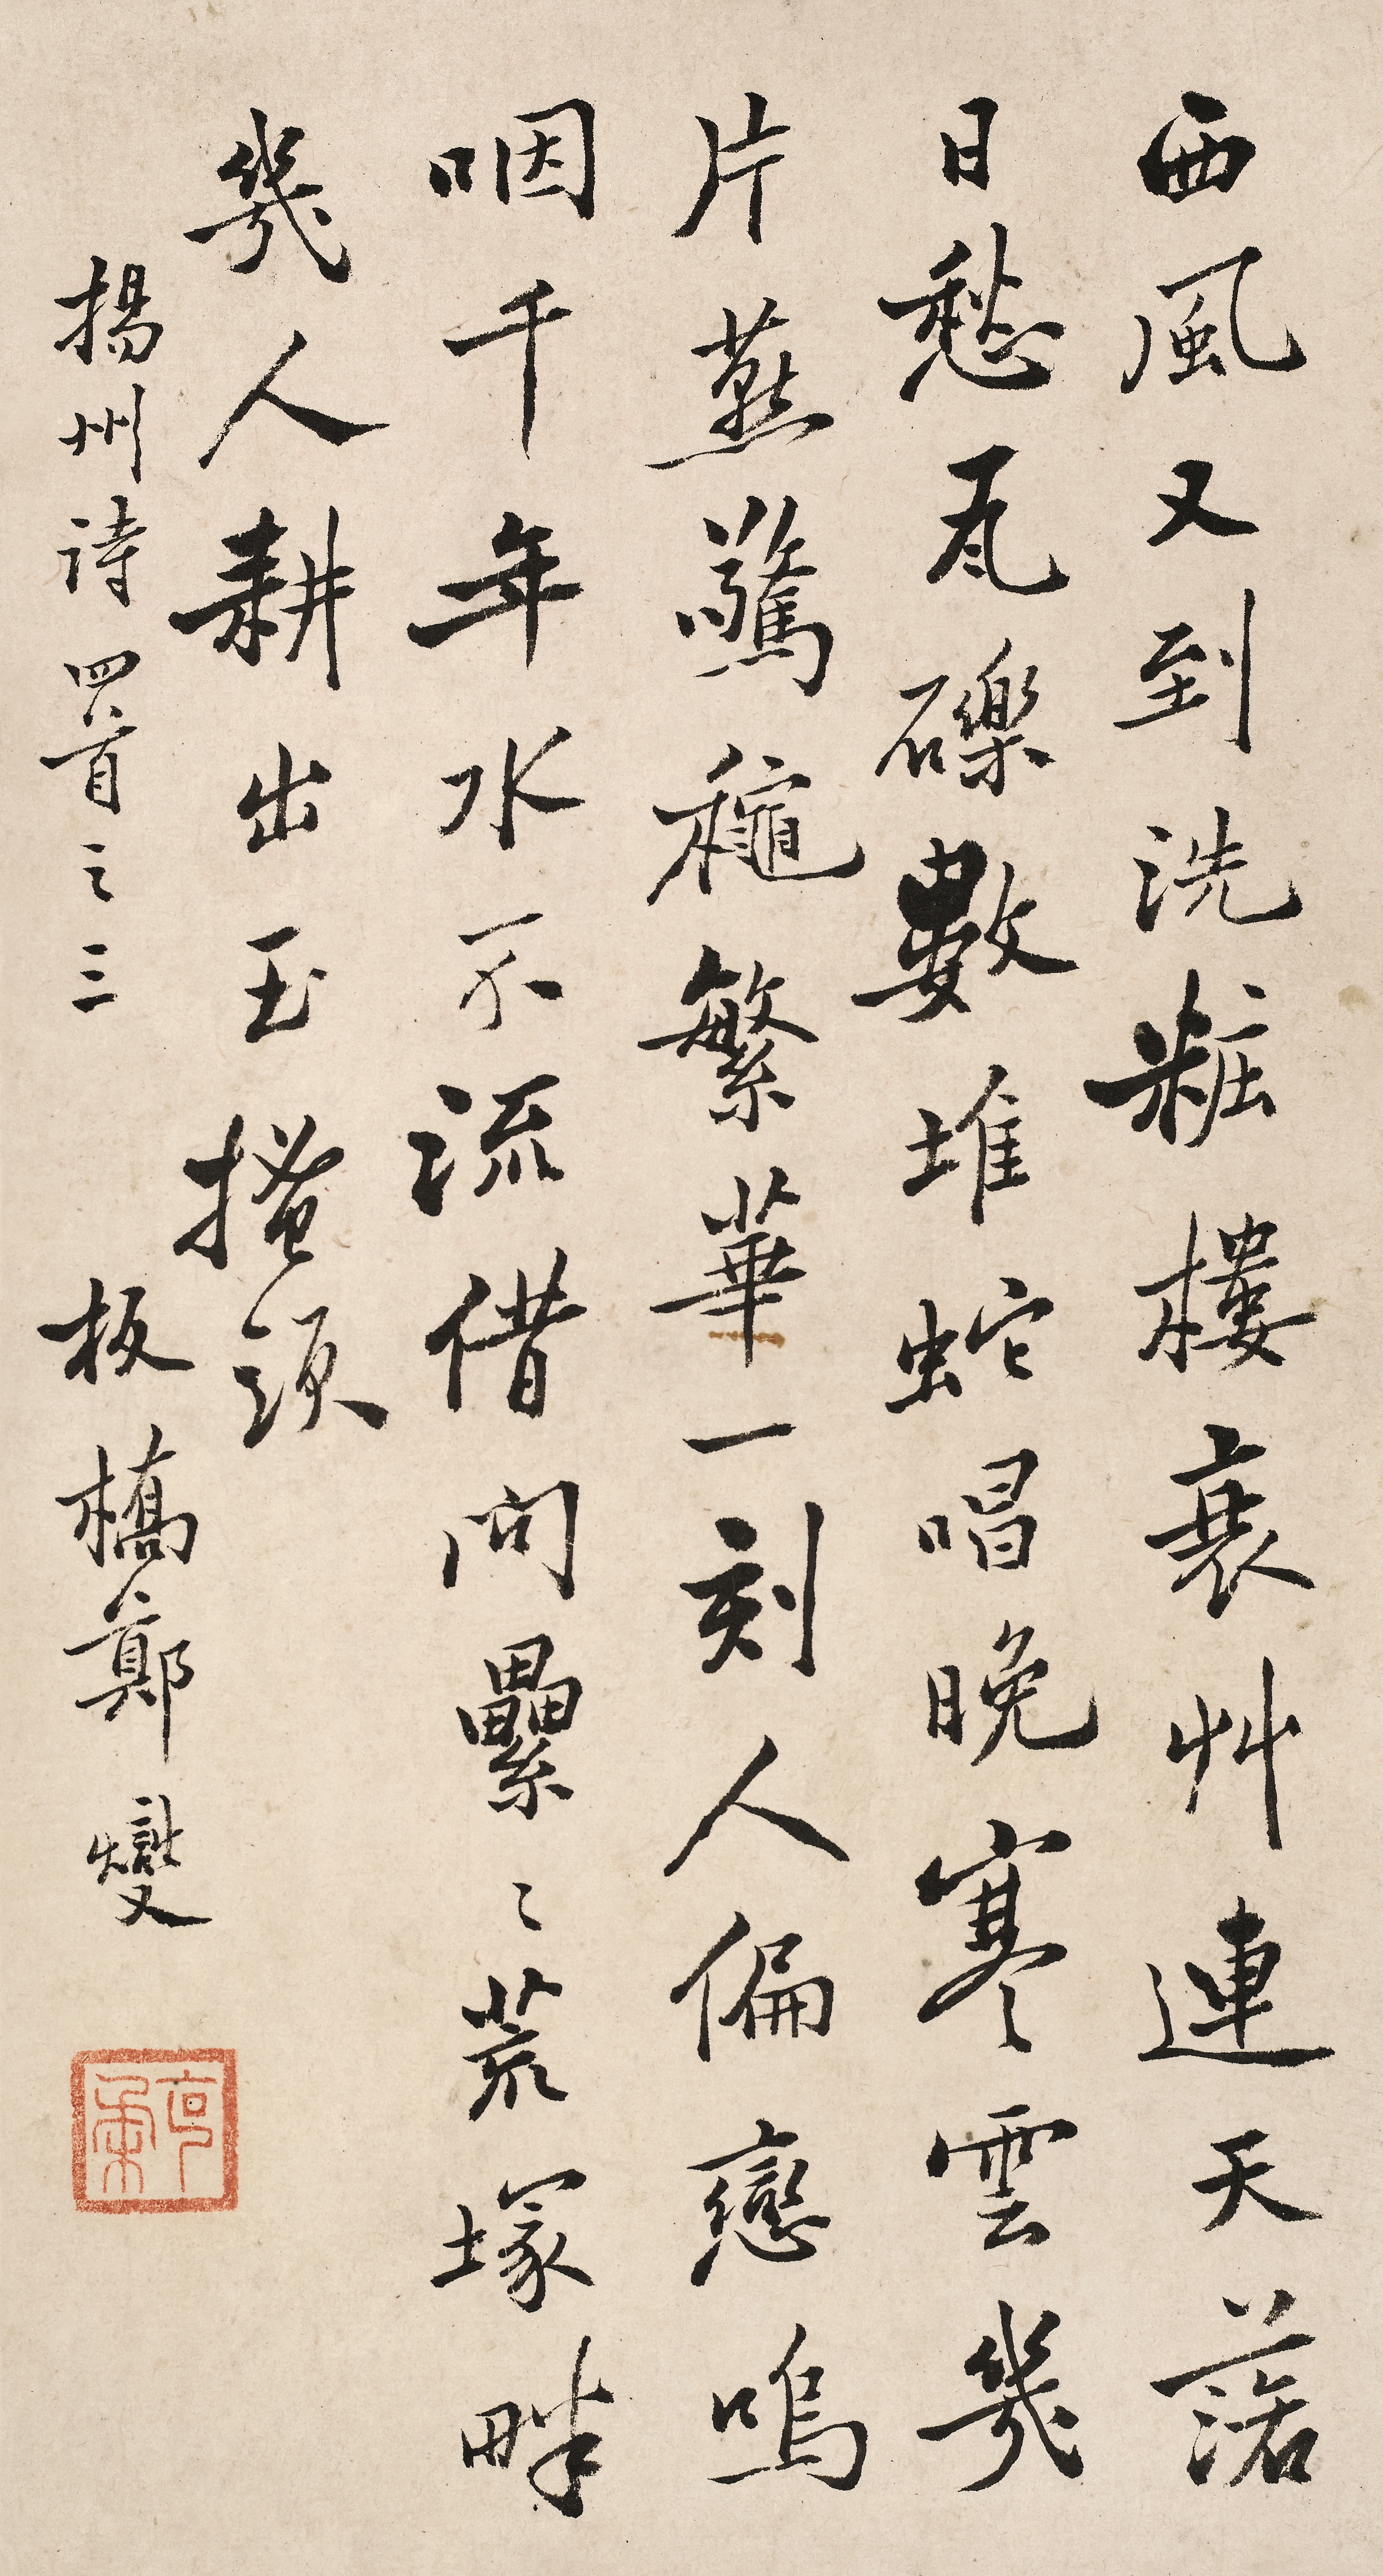 西風又到洗粧樓衰艸連天落
日愁瓦礫數堆蛇唱晚寒雲幾
片燕驚龝繁華一刻人偏戀嗚
咽千年水不流借問纍〻荒塚畔
幾人耕出玉搔頭
揚州詩四首之三
板橋鄭燮